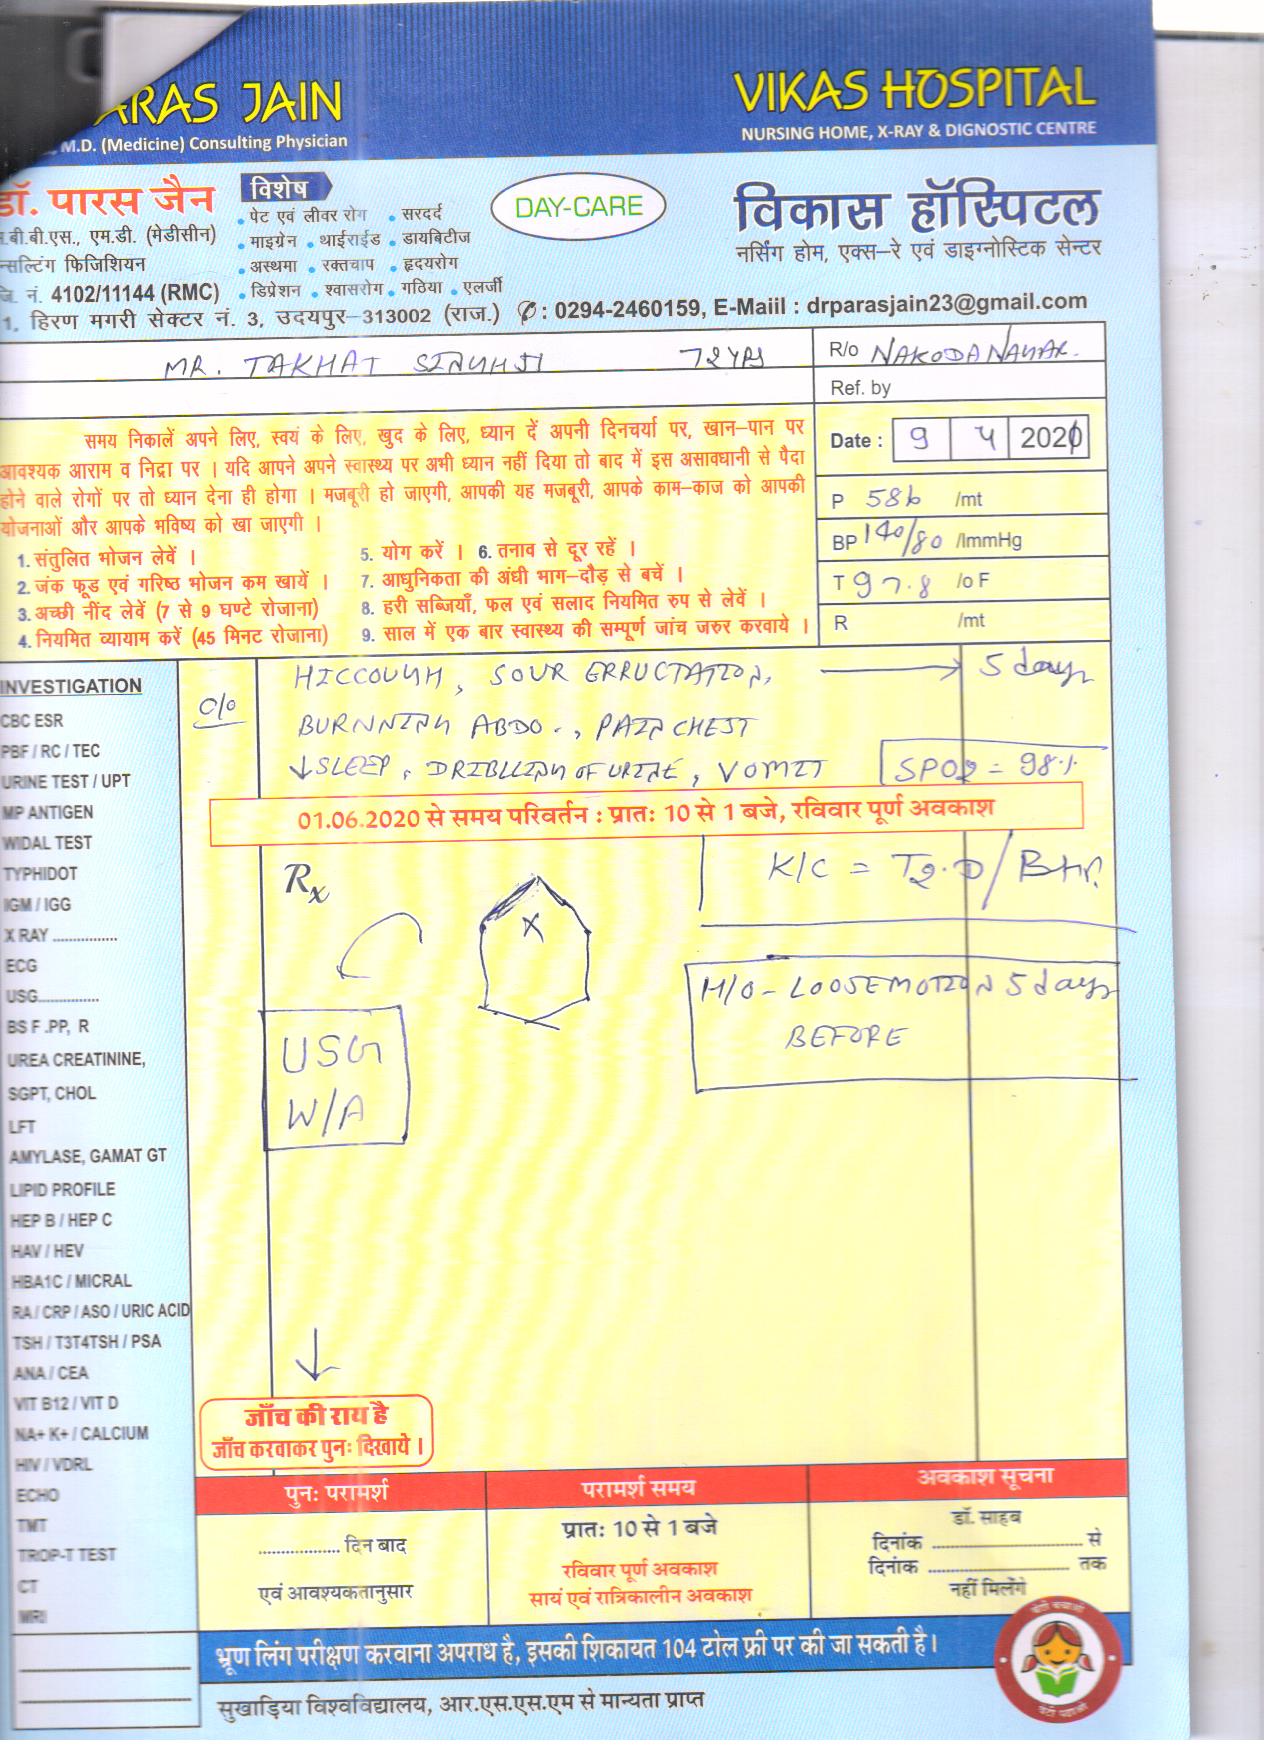 ARAS JAIN
M.D. (Medicine) Consulting Physician
VIKAS HOSPITAL
NURSING HOME, X-RAY & DIGNOSTIC CENTRE
डॉ. पारस जैन
.बी.बी.एस., एम.डी. (मेडीसीन)
न्सल्टिंग फिजिशियन
जि. नं. 4102/11144 (RMC)
विशेष
• पेट एवं लीवर रोग • सरदर्द
• माइग्रेन • थाईराईड • डायबिटीज
• अस्थमा • रक्तचाप • हृदयरोग
• डिप्रेशन • श्वासरोग • गठिया • एलर्जी
DAY-CARE
विकास हॉस्पिटल
नर्सिंग होम, एक्स-रे एवं डाइग्नोस्टिक सेन्टर
1, हिरण मगरी सेक्टर नं. 3, उदयपुर-313002 (राज.) ✆: 0294-2460159, E-Maiil : drparasjain23@gmail.com
MR. TAKHAT SINGHJI 72 YRS
R/o NAKODA NAGAR.
Ref. by
समय निकालें अपने लिए, स्वयं के लिए, खुद के लिए, ध्यान दें अपनी दिनचर्या पर, खान-पान पर
आवश्यक आराम व निद्रा पर । यदि आपने अपने स्वास्थ्य पर अभी ध्यान नहीं दिया तो बाद में इस असावधानी से पैदा
होने वाले रोगों पर तो ध्यान देना ही होगा । मजबूरी हो जाएगी, आपकी यह मजबूरी, आपके काम-काज को आपकी
योजनाओं और आपके भविष्य को खा जाएगी ।
1. संतुलित भोजन लेवें ।
2. जंक फूड एवं गरिष्ठ भोजन कम खायें ।
3. अच्छी नींद लेवें (7 से 9 घण्टे रोजाना)
4. नियमित व्यायाम करें (45 मिनट रोजाना)
5. योग करें । 6. तनाव से दूर रहें ।
7. आधुनिकता की अंधी भाग-दौड़ से बचें ।
8. हरी सब्जियाँ, फल एवं सलाद नियमित रुप से लेवें ।
9. साल में एक बार स्वास्थ्य की सम्पूर्ण जांच जरुर करवाये ।
Date : 9 4 2021
P 58b /mt
BP 140/80 /ImmHg
T 97.8 /o F
R /mt
INVESTIGATION
CBC ESR
PBF / RC / TEC
URINE TEST / UPT
MP ANTIGEN
WIDAL TEST
TYPHIDOT
IGM / IGG
X RAY ................
ECG
USG...............
BS F .PP, R
UREA CREATININE,
SGPT, CHOL
LFT
AMYLASE, GAMAT GT
LIPID PROFILE
HEP B / HEP C
HAV / HEV
HBA1C / MICRAL
RA / CRP / ASO / URIC ACID
TSH / T3T4TSH / PSA
ANA / CEA
VIT B12 / VIT D
NA+ K+ / CALCIUM
HIV / VDRL
ECHO
TMT
TROP-T TEST
CT
MRI
C/o
HICCOUGH, SOUR ERRUCTATION, → 5 days
BURNNING ABDO., PAIN CHEST
↓ SLEEP, DRIBLLING OF URINE, VOMIT
SPO2 = 98%
01.06.2020 से समय परिवर्तन : प्रातः 10 से 1 बजे, रविवार पूर्ण अवकाश
Rx
X
K/C = T2.D/
H/O - LOOSEMOTION 5 days
BEFORE
USG
W/A
↓
जाँच की राय है
जाँच करवाकर पुनः दिखाये ।
पुनः परामर्श
................ दिन बाद
एवं आवश्यकतानुसार
परामर्श समय
प्रातः 10 से 1 बजे
रविवार पूर्ण अवकाश
सायं एवं रात्रिकालीन अवकाश
अवकाश सूचना
डॉ. साहब
दिनांक ............................ से
दिनांक .......................... तक
नहीं मिलेंगे
भ्रूण लिंग परीक्षण करवाना अपराध है, इसकी शिकायत 104 टोल फ्री पर की जा सकती है ।
सुखाड़िया विश्वविद्यालय, आर.एस.एस.एम से मान्यता प्राप्त
बेटी बचाओ
बेटी पढाओ